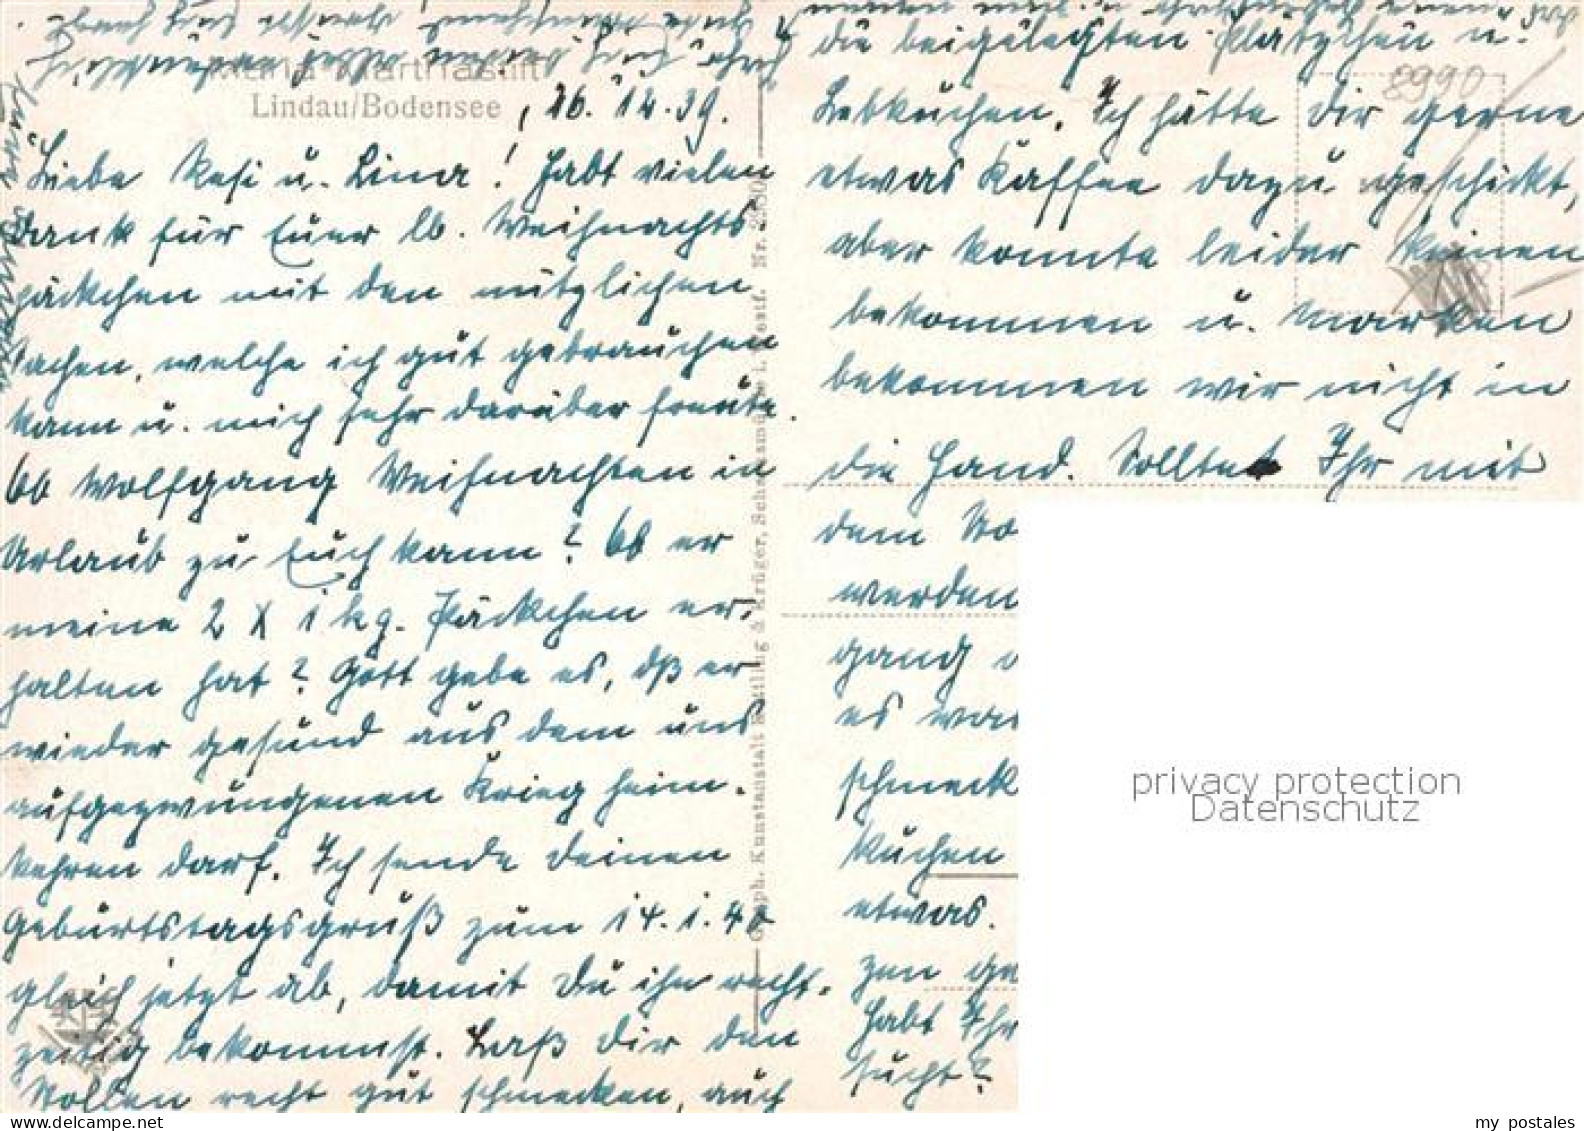 Maria-Marthastift
Lindau/Bodensee
26.12.39.
Liebe Resi u. Lina! Habt vielen
Dank für Euer lb. Weihnachts
päckchen mit den nützlichen
Sachen, welche ich gut gebrauchen
kann u. mich sehr darüber freute.
Ob Wolfgang Weihnachten in
Urlaub zu Euch kann? Ob er
meine 2 X 1 kg. Päckchen er-
halten hat? Gott gebe es, dß er
wieder gesund aus dem uns
aufgezwungenen Krieg heim-
kehren darf. Ich sende Deinen
Geburtstagsgruß zum 14.1.40
gleich jetzt ab, damit Du ihn recht-
zeitig bekommst. Laß Dir den
Stollen recht gut schmecken, auch
die beigelegten Plätzchen u.
Lebkuchen. Ich hätte Dir gerne
etwas Kaffee dazu geschickt,
aber konnte leider keinen
bekommen u. Marken
bekommen wir nicht in
die Hand. Solltet Ihr mit
dem Sto
werden
gang
es war
schmeck
Kuchen
etwas.
zen ge
Habt Ihr
sucht?
Graph. Kunstanstalt Kettling & Krüger, Schalksmühle i. Westf. Nr.
2990
privacy protection
Datenschutz
my postales